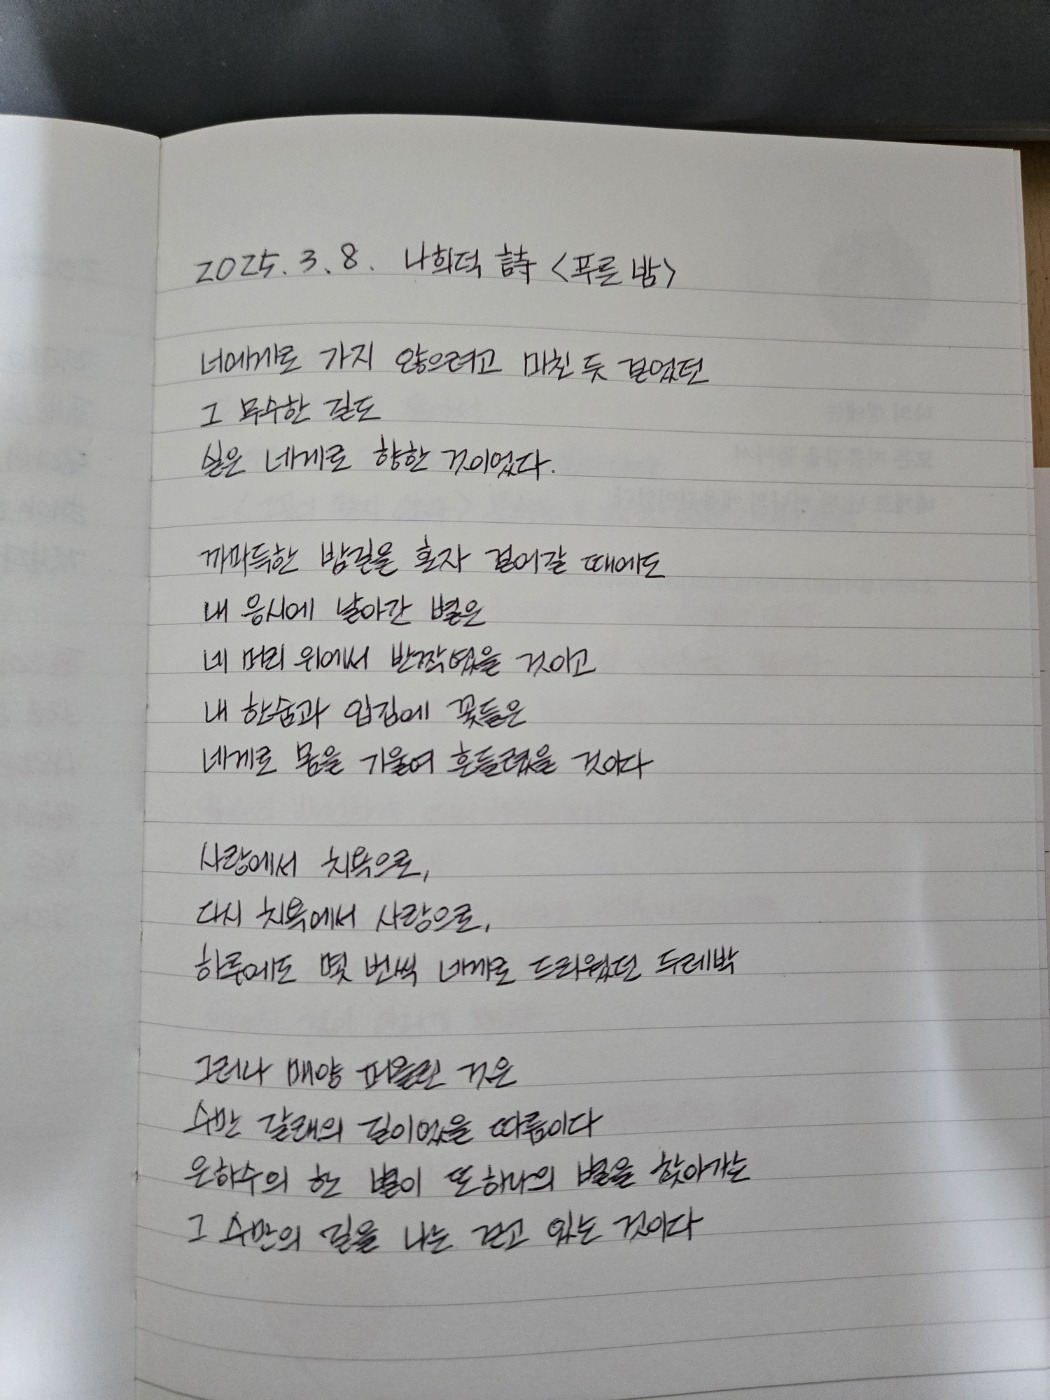 2025. 3. 8. 나희덕 詩 <푸른 밤>
너에게로 가지 않으려고 미친 듯 걸었던
그 무수한 길도
실은 네게로 향한 것이었다.
까마득한 밤길을 혼자 걸어갈 때에도
내 응시에 날아간 별은
네 머리 위에서 반짝였을 것이고
내 한숨과 입김에 꽃들은
네게로 몸을 기울여 흔들렸을 것이다
사랑에서 치욕으로,
다시 치욕에서 사랑으로,
하루에도 몇 번씩 네게로 드리웠던 두레박
그러나 매양 퍼올린 것은
수만 갈래의 길이었을 따름이다
은하수의 한 별이 또하나의 별을 찾아가는
그 수만의 길을 나는 걷고 있는 것이다